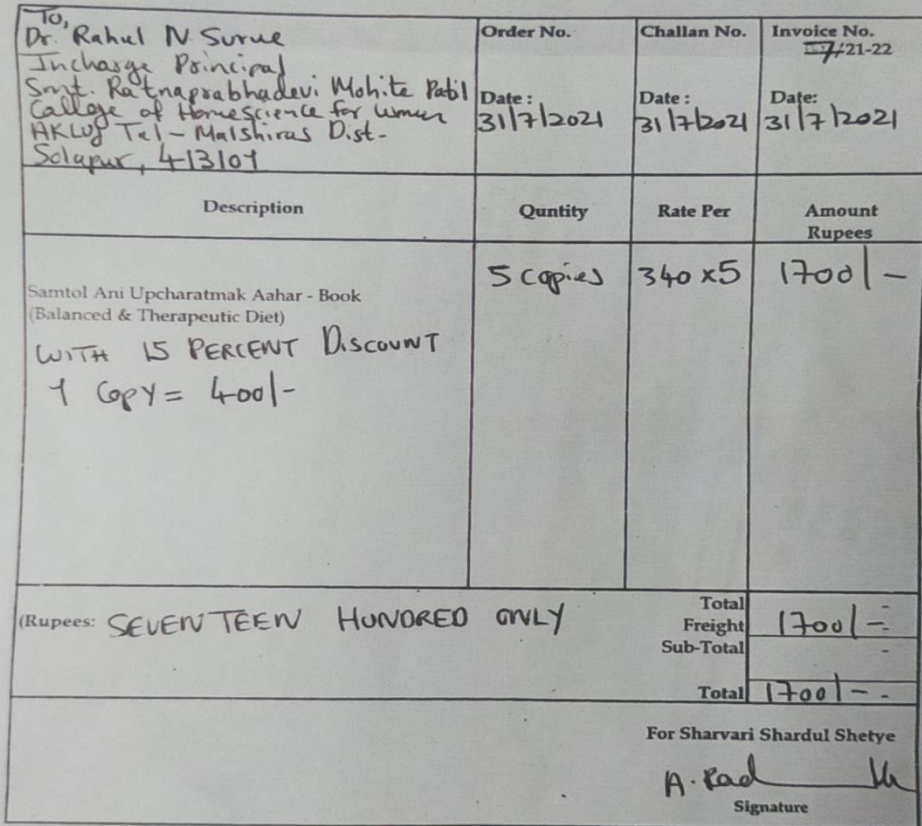 To,
Dr. Rahul N. Surve
Incharge Principal
Smt. Ratnaprabhadevi Mohite Patil
Callage of Homescience for women
AKLUJ Tal - Malshiras Dist-
Solapur, 413101
Order No.
Date :
31/7/2021
Challan No.
Date :
31/7/2021
Invoice No.
/21-22
Date:
31/7/2021
Description
Quntity
Rate Per
Amount
Rupees
Samtol Ani Upcharatmak Aahar - Book
(Balanced & Therapeutic Diet)
5 Copies
340 x5
1700/-
WITH 15 PERCENT DISCOUNT
1 Copy = 400/-
(Rupees: SEVENTEEN HUNDRED ONLY
Total
Freight
1700/-
-
Sub-Total
-
Total
1700/- -
For Sharvari Shardul Shetye
Signature